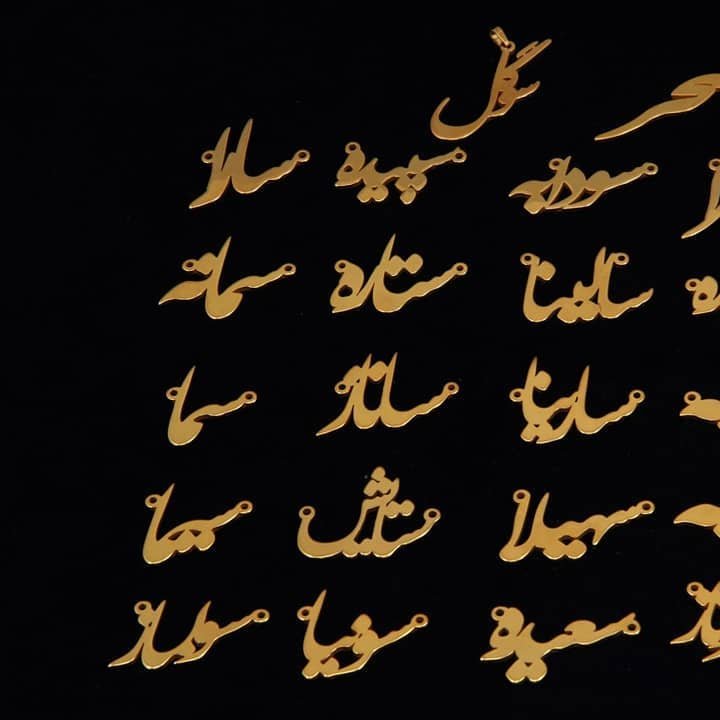 سوگل
سودابه سپیده سارا
سالینا ستاره سمانه
سارینا ساناز سما
سهیلا ستایش سیما
سعیده سونیا سولماز